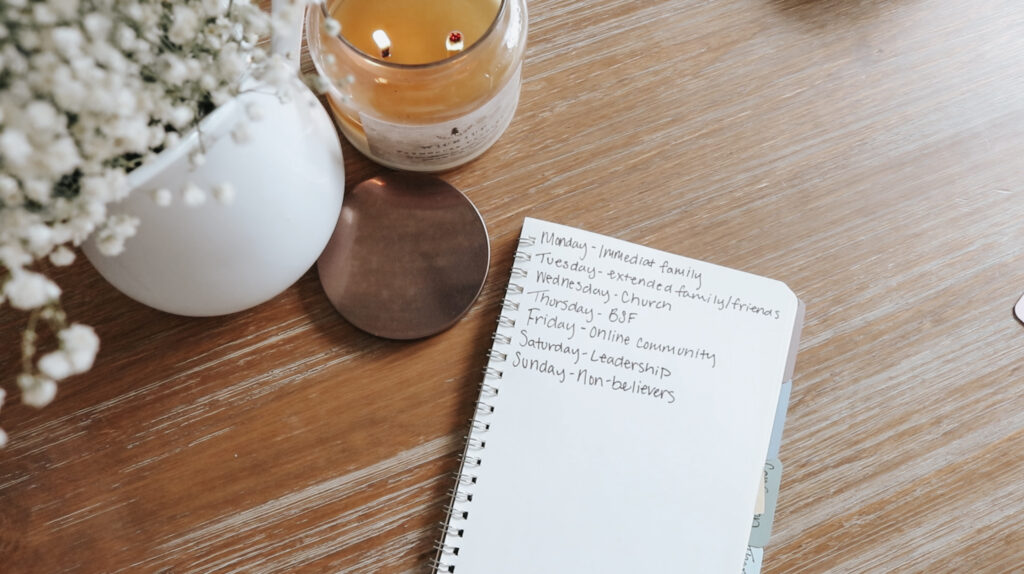 Monday - Immediat family
Tuesday - extended family/friends
Wednesday - Church
Thursday - BSF
Friday - Online community
Saturday - Leadership
Sunday - Non-believers